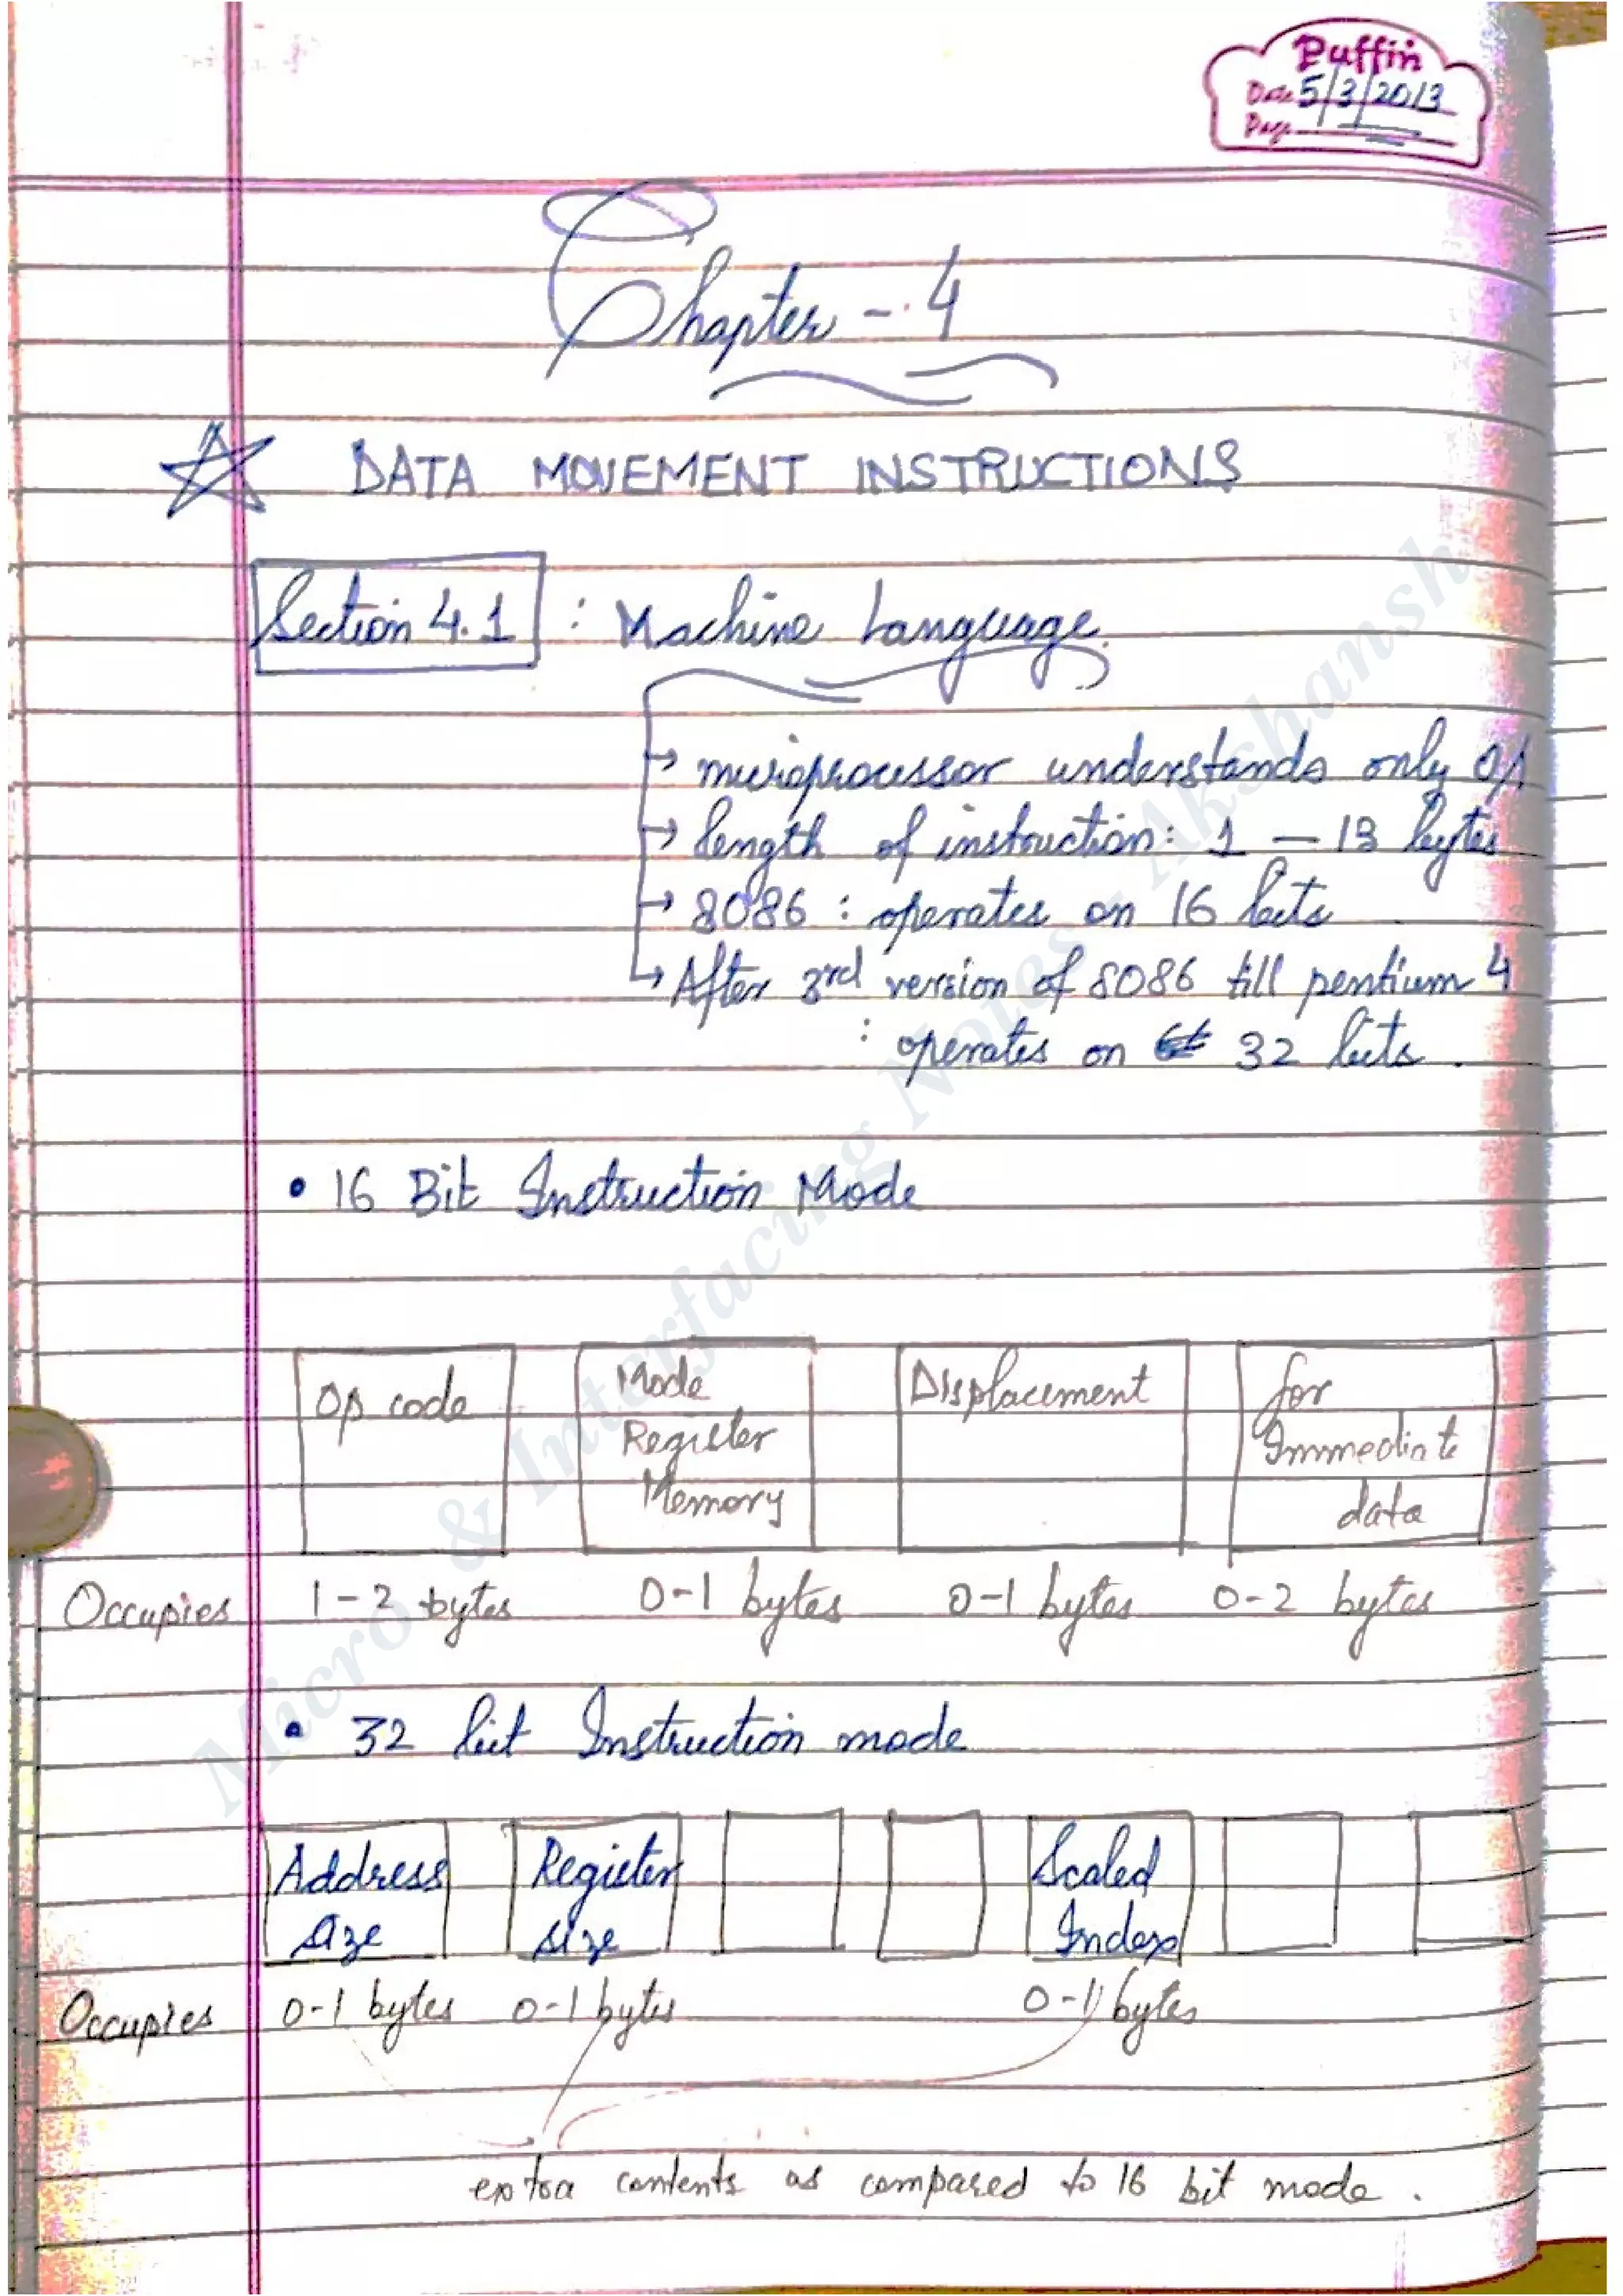 Puffin
Date 5/3/2013
Page
Chapter - 4
DATA MOVEMENT INSTRUCTIONS
Section 4.1 : Machine Language
→ microprocessor understands only 0/1
→ length of instruction: 1 — 13 bytes
→ 8086 : operates on 16 bits
→ After 3rd version of 8086 till pentium 4
: operates on 32 bits.
• 16 Bit Instruction Mode
Op code
Mode Register Memory
Displacement
for Immediate data
Occupies 1-2 bytes 0-1 bytes 0-1 bytes 0-2 bytes
• 32 bit Instruction mode
Address size
Register size
Scaled Index
Occupies 0-1 bytes 0-1 bytes 0-1 bytes
extra contents as compared to 16 bit mode.
Micro & Interfacing Notes - Akshansh